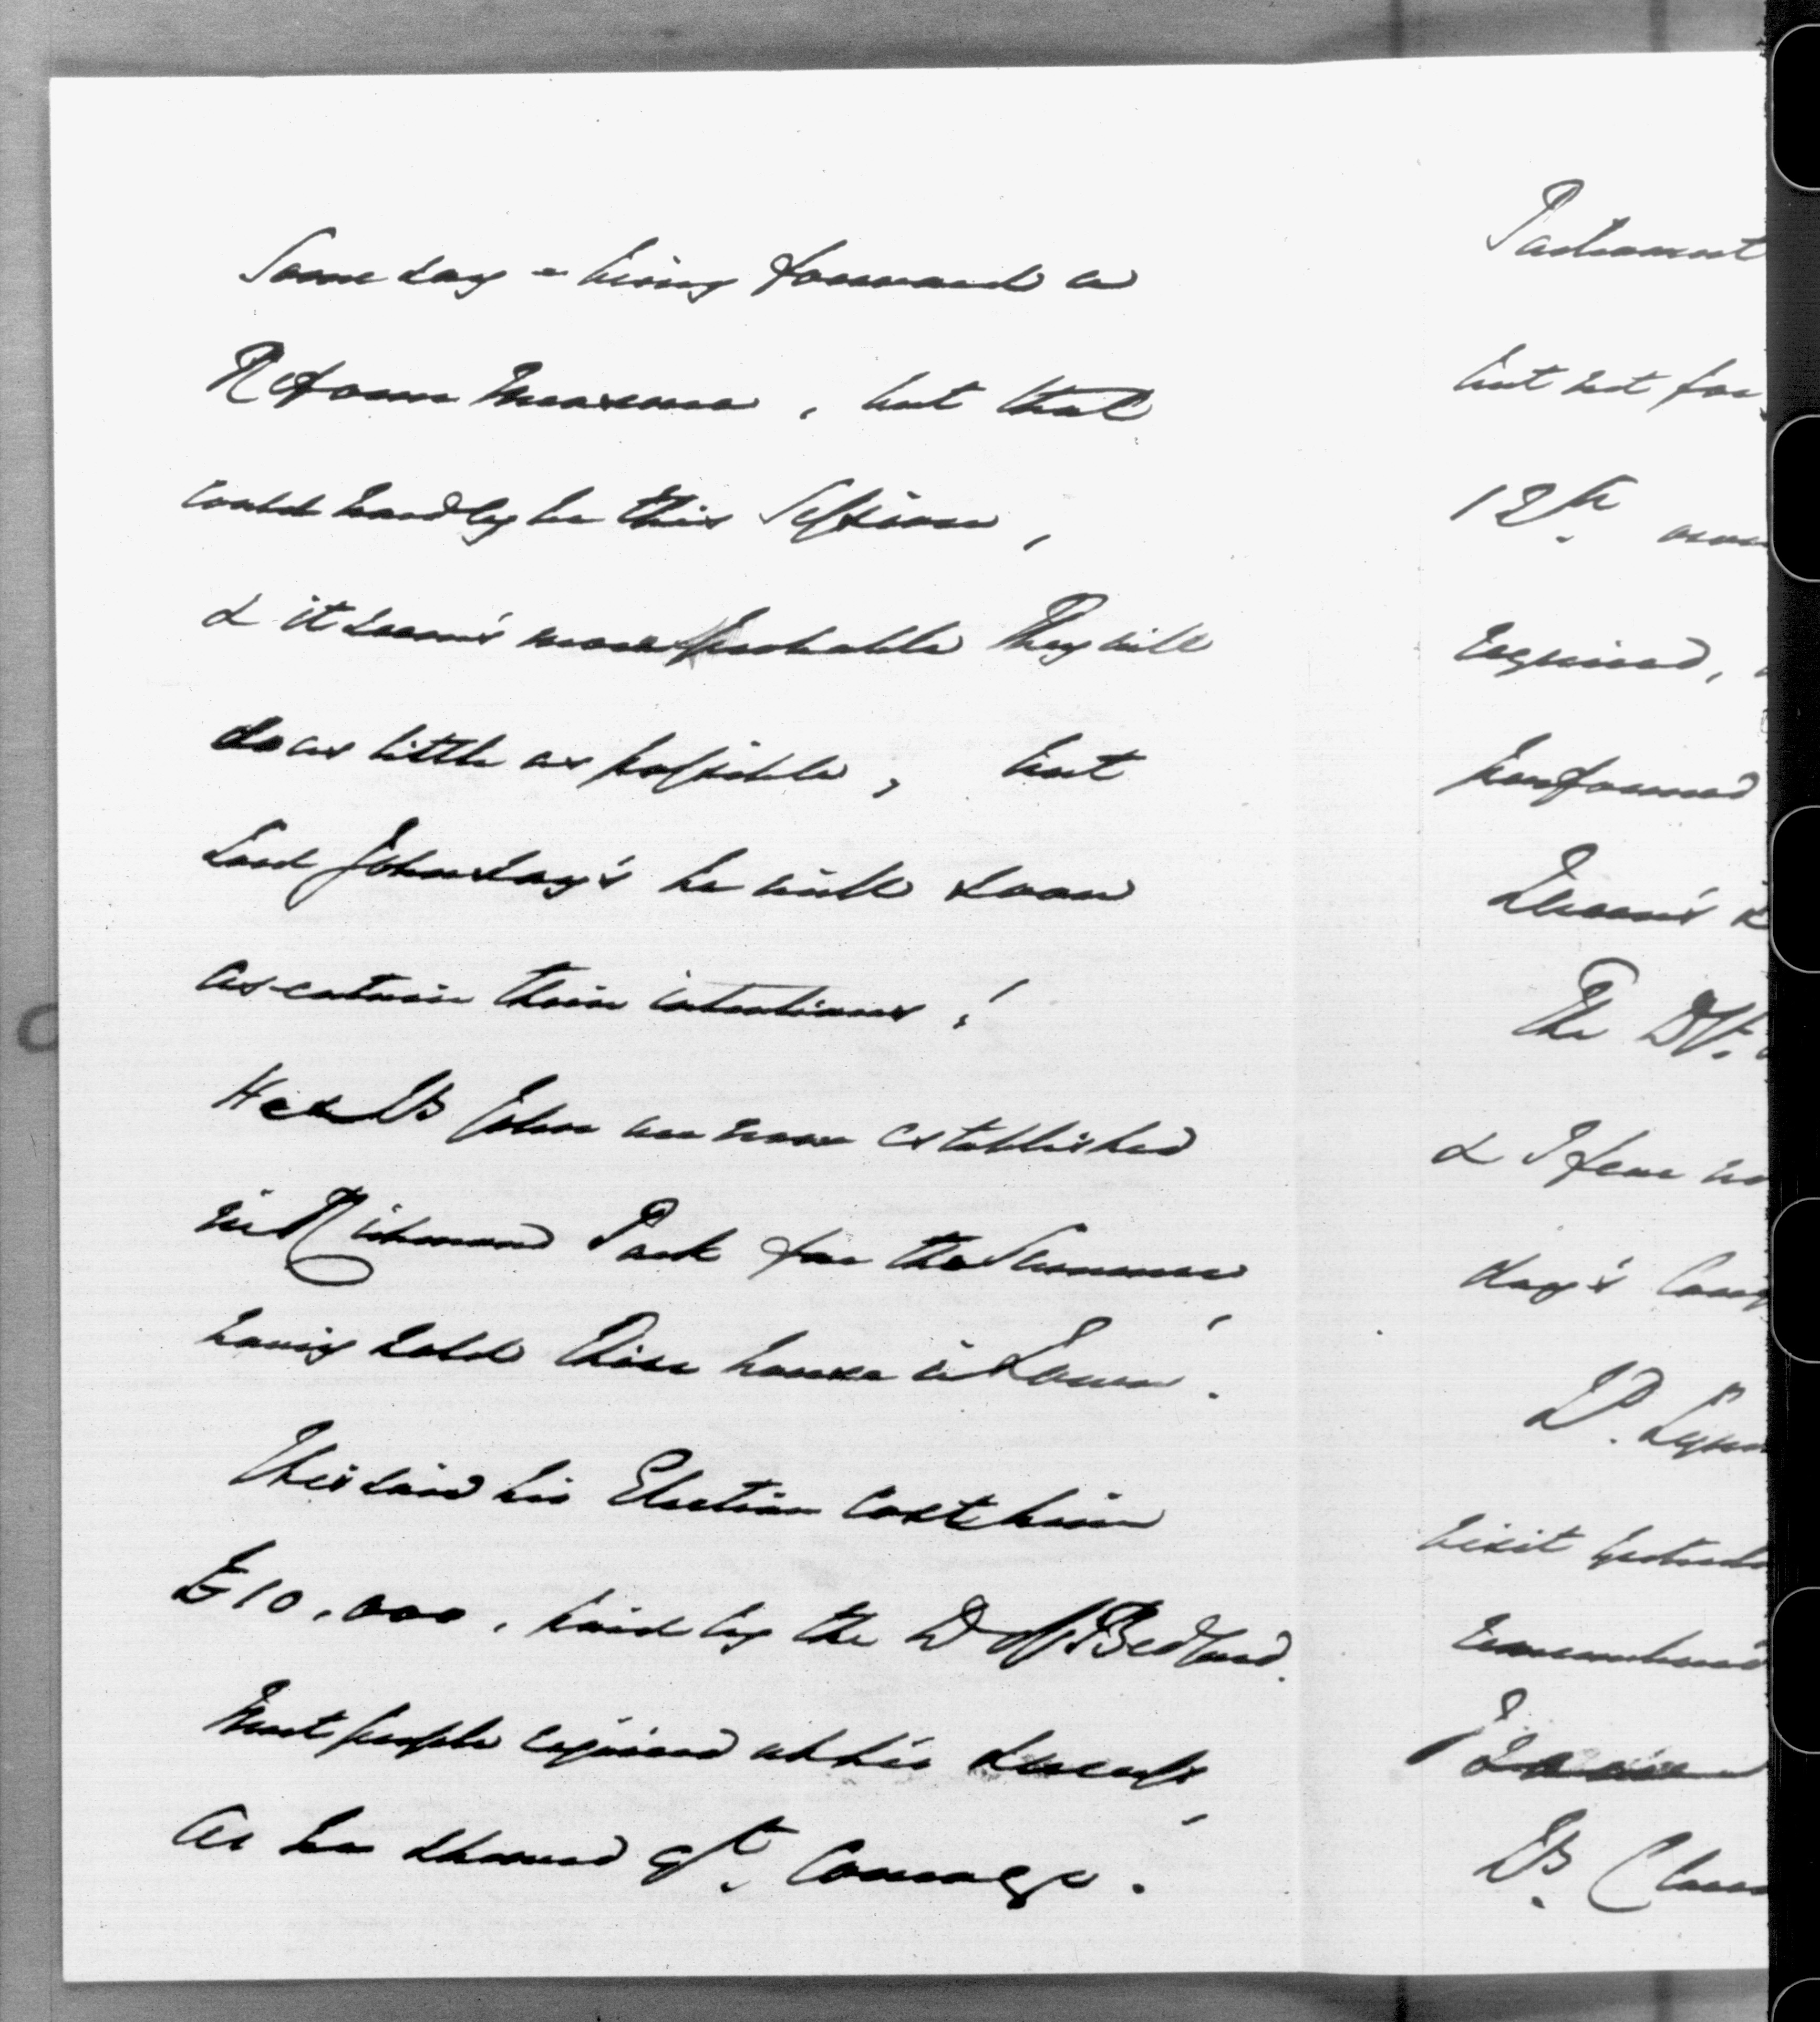 Some day - bring forward a
Reform Measure, but that
could hardly be this Session,
& it seem's more probable they will
do as little as possible, but
Lord John say's he will soon
ascertain their intentions!
He & Ly John are now established
in Richmond Park for the Summer,
having sold their house in Town.
They said his Election cost him
£10,000, paid by the D of Bedford.
Most people rejoiced at his success,
as he showed gt. Courage.
Parliament
but not for
12th
required,
performed
Queen's
The Dss.
& I fear no
day's long
Ld. Lynd
visit yesterda
remembered
Ly. Clan